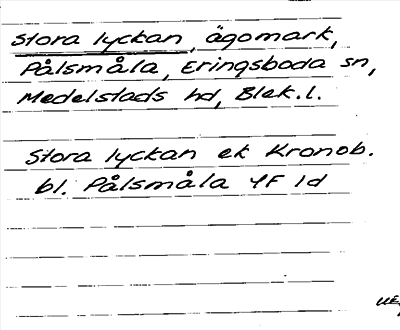 Stora lyckan, ägomark,
Pålsmåla, Eringsboda sn,
Medelstads hd, Blek.l.
Stora lyckan ek Kronob.
bl. Pålsmåla YF 1d